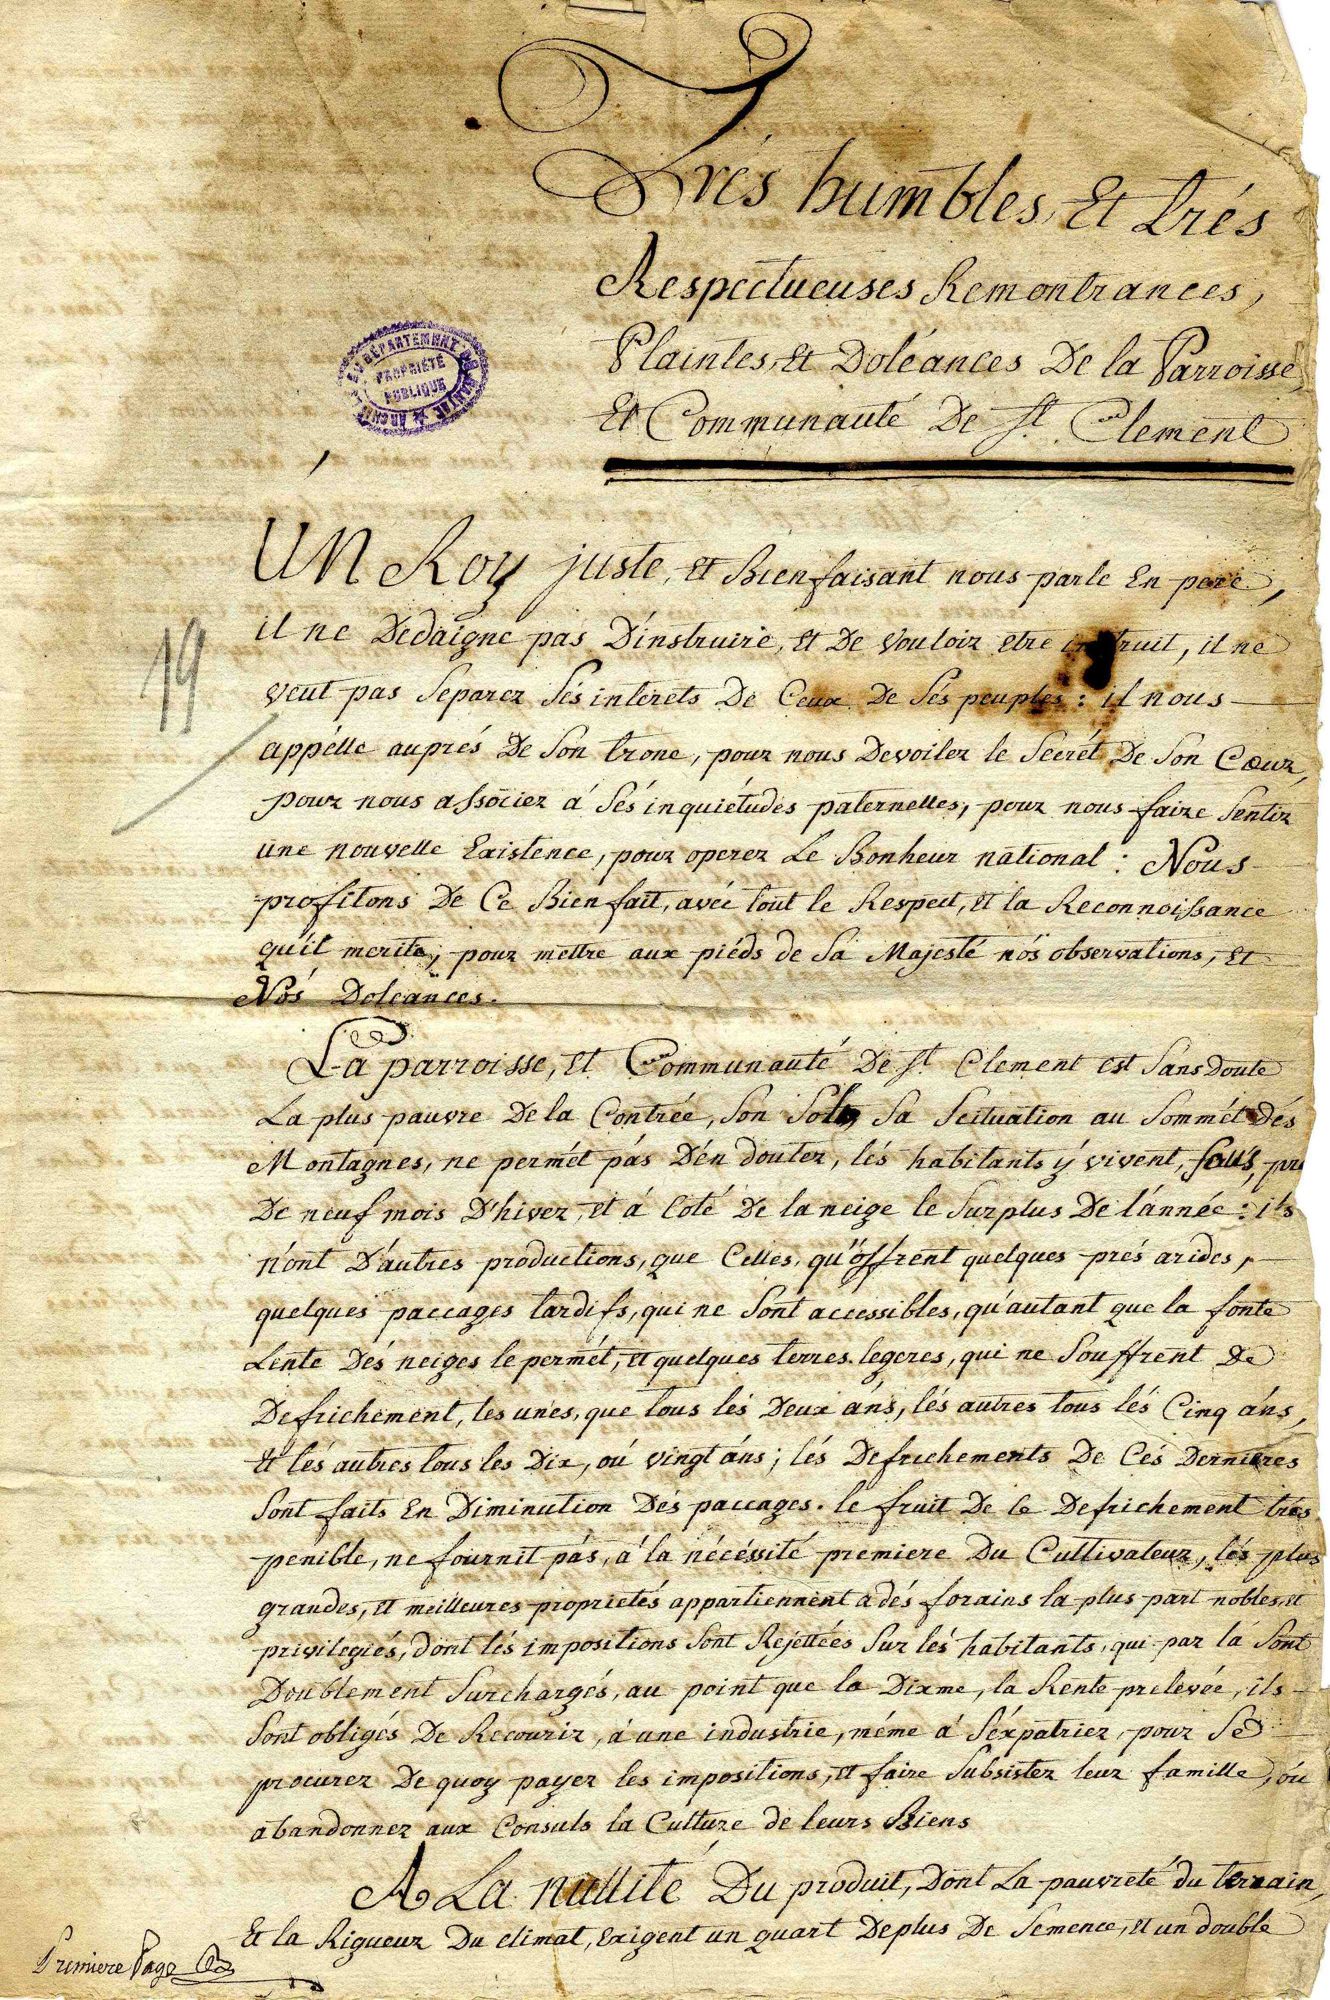 Trés humbles, Et trés
Respectueuses Remontrances,
Plaintes, Et Doléances De la Parroisse,
Et Communauté De St. Clement
ARCHIVES DU DÉPARTEMENT DU CANTAL
PROPRIÉTÉ
PUBLIQUE
UN Roy juste, et Bienfaisant nous parle En pere,
il ne Dedaigne pas D'instruire, et De Vouloir etre instruit, il ne
veut pas Separer Sés interets De Ceux De Sés peuples : il nous
appélle auprés De Son trone, pour nous Devoiler le Secrét De Son Cœur,
pour nous associer á Sés inquiétudes paternelles, pour nous faire Sentir
une nouvelle Existence, pour operer Le Bonheur national : Nous
profitons De Ce Bienfait, avéc tout le Respect, et la Reconnoissance
qu'il merite, pour mettre aux piéds de Sa Majesté nós observations, et
Nós Doleances.
La parroisse, et Communauté De St. Clement est Sans Doute
La plus pauvre De la Contrée, Son Sol, Sa Scituation au Sommét Dés
Montagnes, ne permét pás D'en douter, lés habitants y vivent, sous, prés
De neuf mois D'hiver, et á Coté De la neige le Surplus De l'année : ils
n'ont D'autres productions, que Celles, qu'offrent quelques prés arides,
quelques paccages tardifs, qui ne Sont accessibles, qu'autant que la fonte
Lente Dés neiges le permét, et quelques terres legeres, qui ne Souffrent De
Defrichement, les unes, que tous lés Deux áns, lés autres tous lés Cinq áns,
Et lés autres tous les Dix, oú vingt áns ; lés Defrichements De Cés Dernieres
Sont faits En Diminution Dés paccages. le fruit De ce Defrichement trés
penible, ne fournit pás, á la nécéssité premiere Du Cultivateur, lés plus
grandes, et meilleures proprietés appartiennent a dés forains la plus part nobles, et
privilegiés, dont lés impositions Sont Rejettées Sur lés habitants, qui par lá Sont
Doublement Surchargés, au point que la Dixme, la Rente prelevée, ils
Sont obligés De Recourir, á une industrie, méme á S'éxpatrier, pour Se
procurer De quoy payer les impositions, et faire Subsister leur famille, oú
abandonner aux Consuls la Culture de leurs Biens
A La nullité Du produit, Dont La pauvreté du terrain,
Et la Rigueur Du climat, Exigent un quart De plus De Semence, et un double
Premiere Page
19